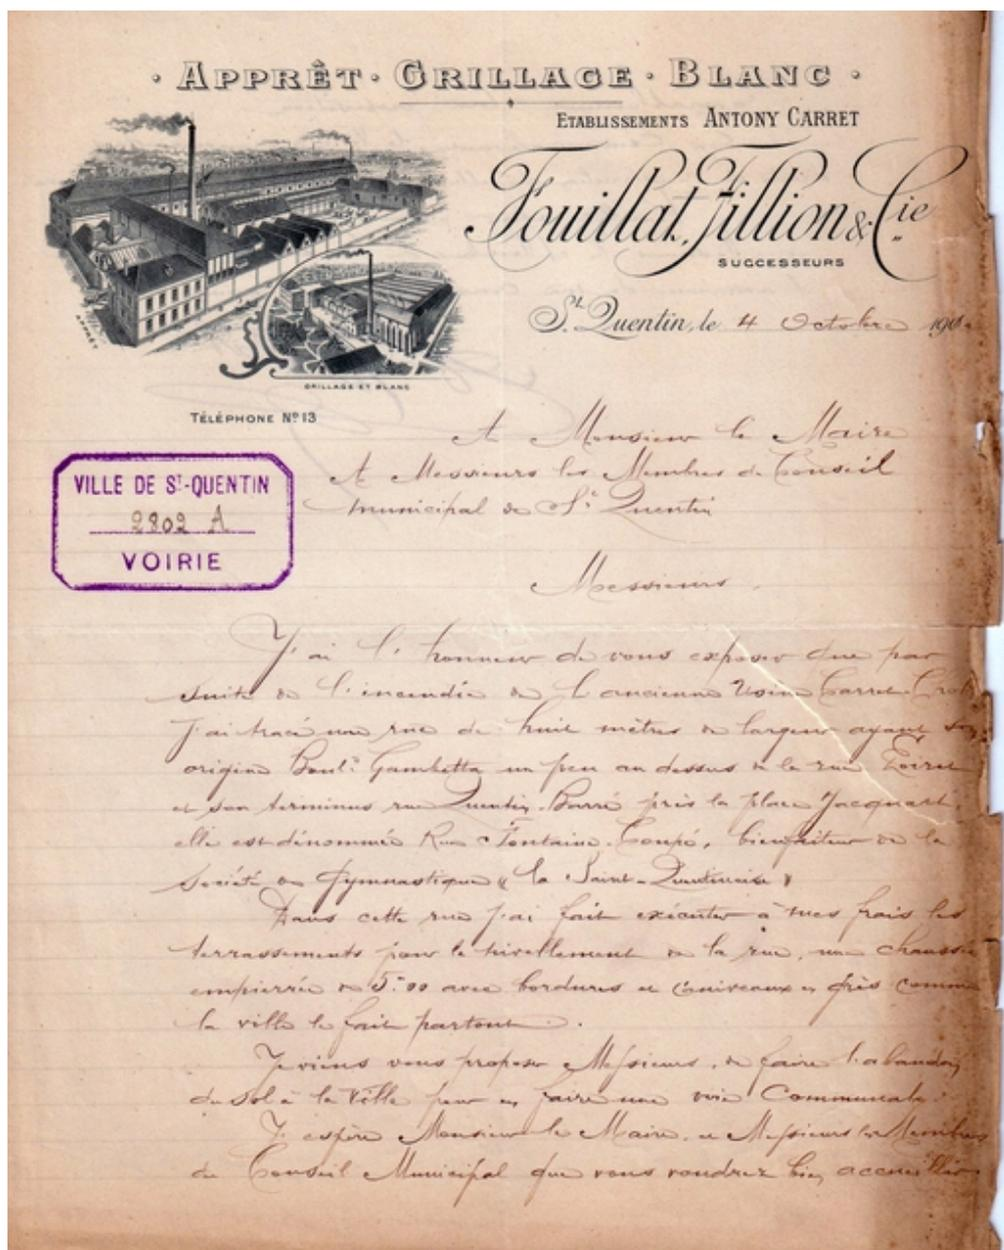 · APPRÊT · GRILLAGE · BLANC ·
ETABLISSEMENTS ANTONY CARRET
Fouillat, Fillion & Cie
SUCCESSEURS
St. Quentin, le 4 Octobre 190
APPRÊT
GRILLAGE ET BLANC
TÉLÉPHONE No 13
VILLE DE St-QUENTIN
2802 A
VOIRIE
A Monsieur le Maire
A Messieurs les Membres du Conseil
municipal de St Quentin
Messieurs.
J'ai l'honneur de vous exposer que par
suite de l'incendie de l'ancienne Usine Carret
j'ai tracé une rue de huit mètres de largeur ayant son
origine Boult. Gambetta un peu au dessus de la rue
et son terminus rue Quentin-Barré près la place Jacquart.
elle est dénommée Rue Fontaine-Coupé, bienfaiteur de la
société de Gymnastique "la Saint-Quentinoise"
Dans cette rue j'ai fait exécuter à mes frais les
terrassements pour le nivellement de la rue, une chaussée
empierrée de 5m00 avec bordures et caniveaux en grès comme
la ville le fait partout.
Je viens vous proposer Messieurs, de faire l'abandon
du sol à la Ville pour en faire une voie Communale.
J'espère Monsieur le Maire, et Messieurs les Membres
du Conseil Municipal que vous voudrez bien accueillir